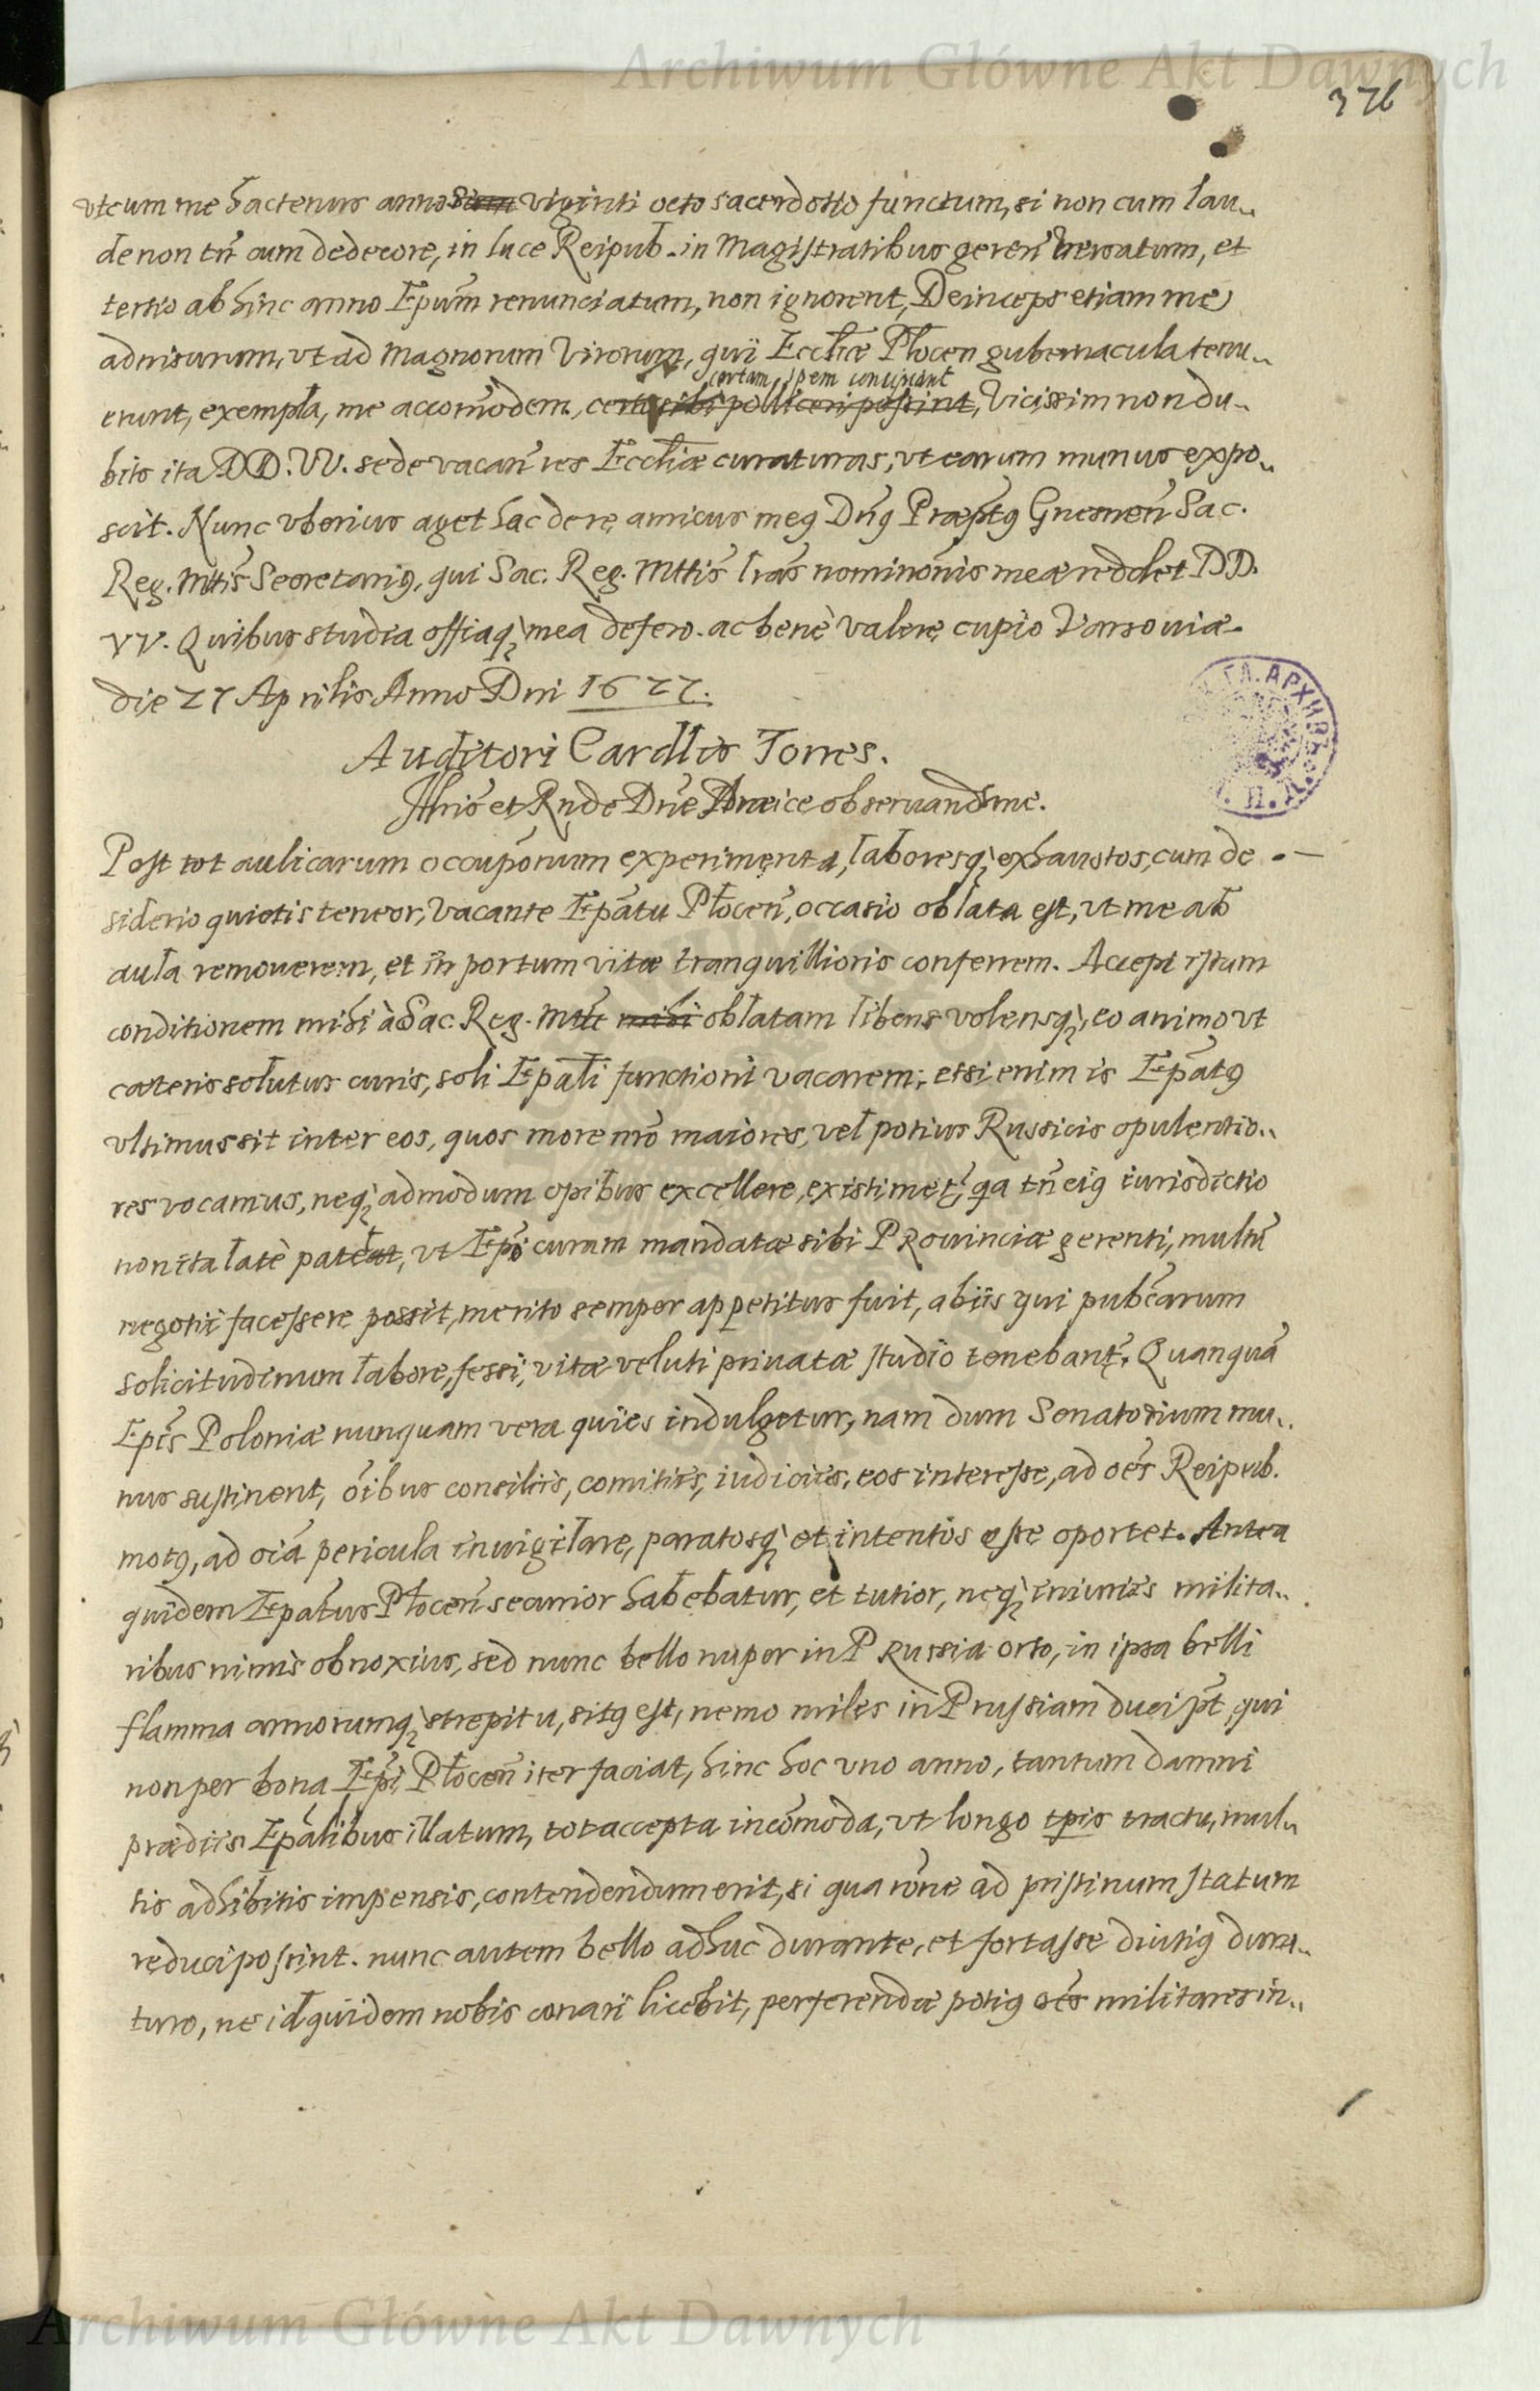 Archiwum Główne Akt Dawnych
376
vt cum me hactenus annos viginti octo sacerdotio functum, si non cum lau„
de non tñ cum dedecore, in luce Reipub. in Magistratibus gereñ versatum, et
tertio ab hinc anno Epūm renunciatum, non ignorent, Deinceps etiam me
adnisurum, vt ad magnorum Virorum, qui Eccliæ Płocen gubernacula tenu„
certam spem concipiant
erunt, exempla, me accom̃odem, certo sibi polliceri possint, Vicissim non du„
bito ita DD. VV. sede vacañ res Eccliæ curaturas, vt earum munus expo„
scit. Nunc vberius aget hac de re amicus meg Dñg Præptg Gnesneñ Sac.
Reg. Mttis Secretarig, qui Sac. Reg. Mttis lrãs nominõnis meæ reddet DD.
VV. Quibus studia offiaq; mea defero. ac benè valere cupio Varsouiæ.
die 27 Aprilis Anno Dni 1627.
Auditori Cardlis Torres.
Illris et Rnde Dñe Amice obseruandsme.
Post tot aulicarum occupõnum experimenta, laboresq; exhaustos, cum de
siderio quietis teneor, Vacante Epãtu Płoceñ, occasio oblata est, vt me ab
aula remouerem, et in portum vitæ tranquillioris conferrem. Accepi istam
conditionem mihi à Sac. Reg. Mtte mihi oblatam libens volensq;, eo animo vt
cæteris solutus curis, soli Epãli functioni vacarem; etsi enim is Epãtg
vltimus sit inter eos, quos more nr̃o maiores, vel potius Russicis opulentio„
res vocamus, neq; admodum opibus excellere, existimet̃, qa tñ eig iurisdictio
non ita latè patet, vt Epo curam mandatæ sibi Prouinciæ gerenti, multũ
negotii facessere possit, merito semper appetitus fuit, ab iis qui pubcarum
solicitudinum labore, fessi, vitæ veluti priuatæ studio tenebant̃. Quanquã
Epis Poloniæ nunquam vera quies indulgetur, nam dum Senatorium mu„
nus sustinent, õibus consiliis, comitiis, iudiciis, eos interesse, ad oẽs Reipub.
motg, ad oĩa pericula inuigilare, paratosq; et intentos esse oportet. Antea
quidem Epatus Płoceñ securior habebatur, et tutior, neq; iniuriis milita„
ribus nimis obnoxius, sed nunc bello nuper in Prussia orto, in ipsa belli
flamma armorumq; strepitu, sitg est, nemo miles in Prussiam duci pt̃, qui
non per bona Epi Płoceñ iter faciat, hinc hoc vno anno, tantum damni
prædiis Epalibus illatum, tot accepta incõmoda, vt longo tp̃is tractu, mul„
tis adhibitis impensis, contendendum erit, si qua rõne ad pristinum statum
reduci possint. nunc autem bello adhuc durante, et fortasse diutig dura„
turo, ne id quidem nobis conari licebit, perferendæ potig oẽs militares in„
Archiwum Główne Akt Dawnych